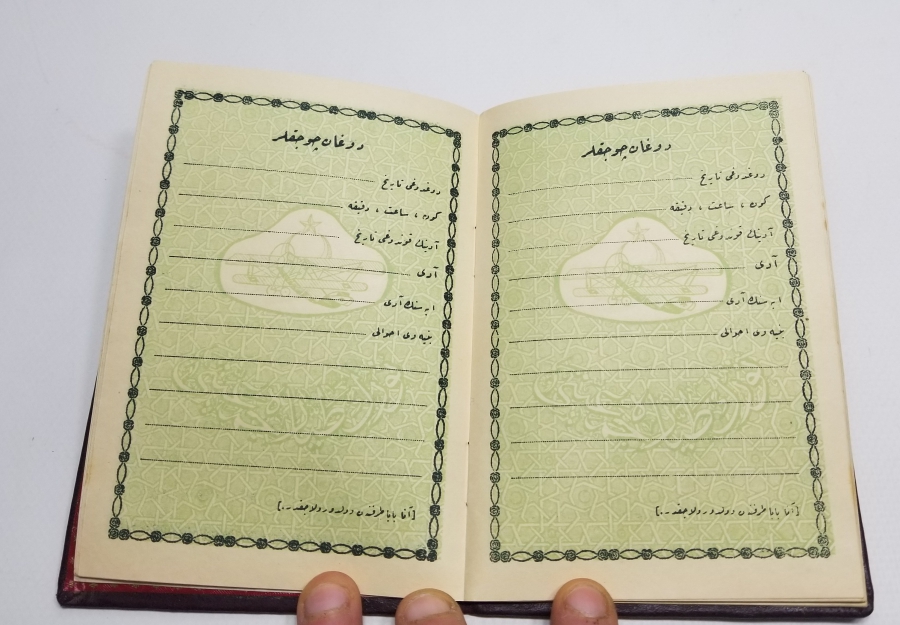 دوغان چوجقلر
دوغدوغی تاریخ
كون ، ساعت ، دقیقه
آدینك قوندوغی تاریخ
آدی
ابه سنك آدی
بنیه وی احوالی
[آنا بابا طرفندن دولدورولاجقدر.]
دوغان چوجقلر
دوغدوغی تاریخ
كون ، ساعت ، دقیقه
آدینك قوندوغی تاریخ
آدی
ابه سنك آدی
بنیه وی احوالی
[آنا بابا طرفندن دولدورولاجقدر.]